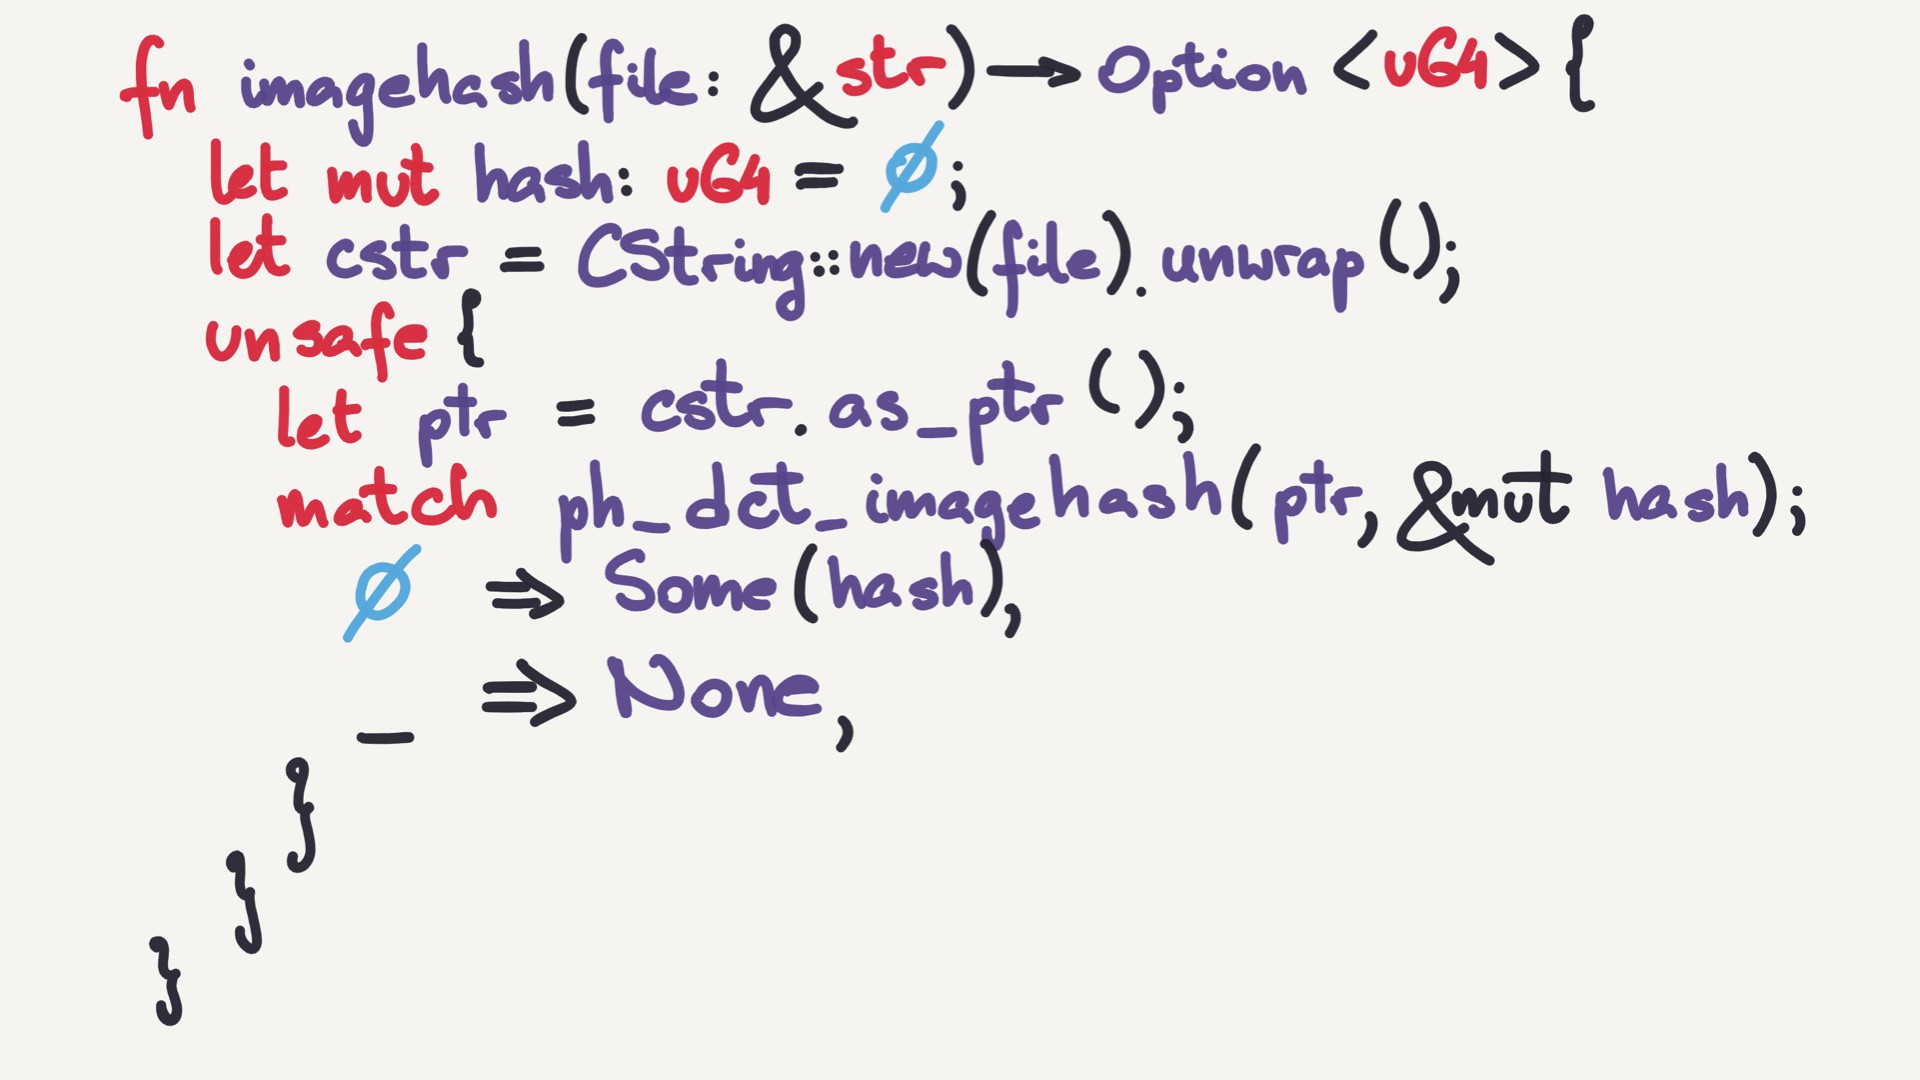 fn imagehash(file: &str) → Option <u64> {
let mut hash: u64 = 0;
let cstr = CString::new(file).unwrap();
unsafe {
let ptr = cstr.as_ptr();
match ph_dct_imagehash(ptr, &mut hash);
0 ⇒ Some(hash),
_ ⇒ None,
}
}
}